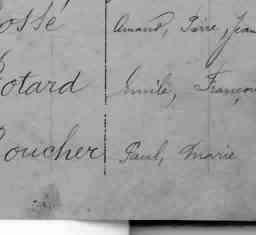 ossé Amand, Pierre, Jean
otard Emile, Franço
oucher Paul, Marie